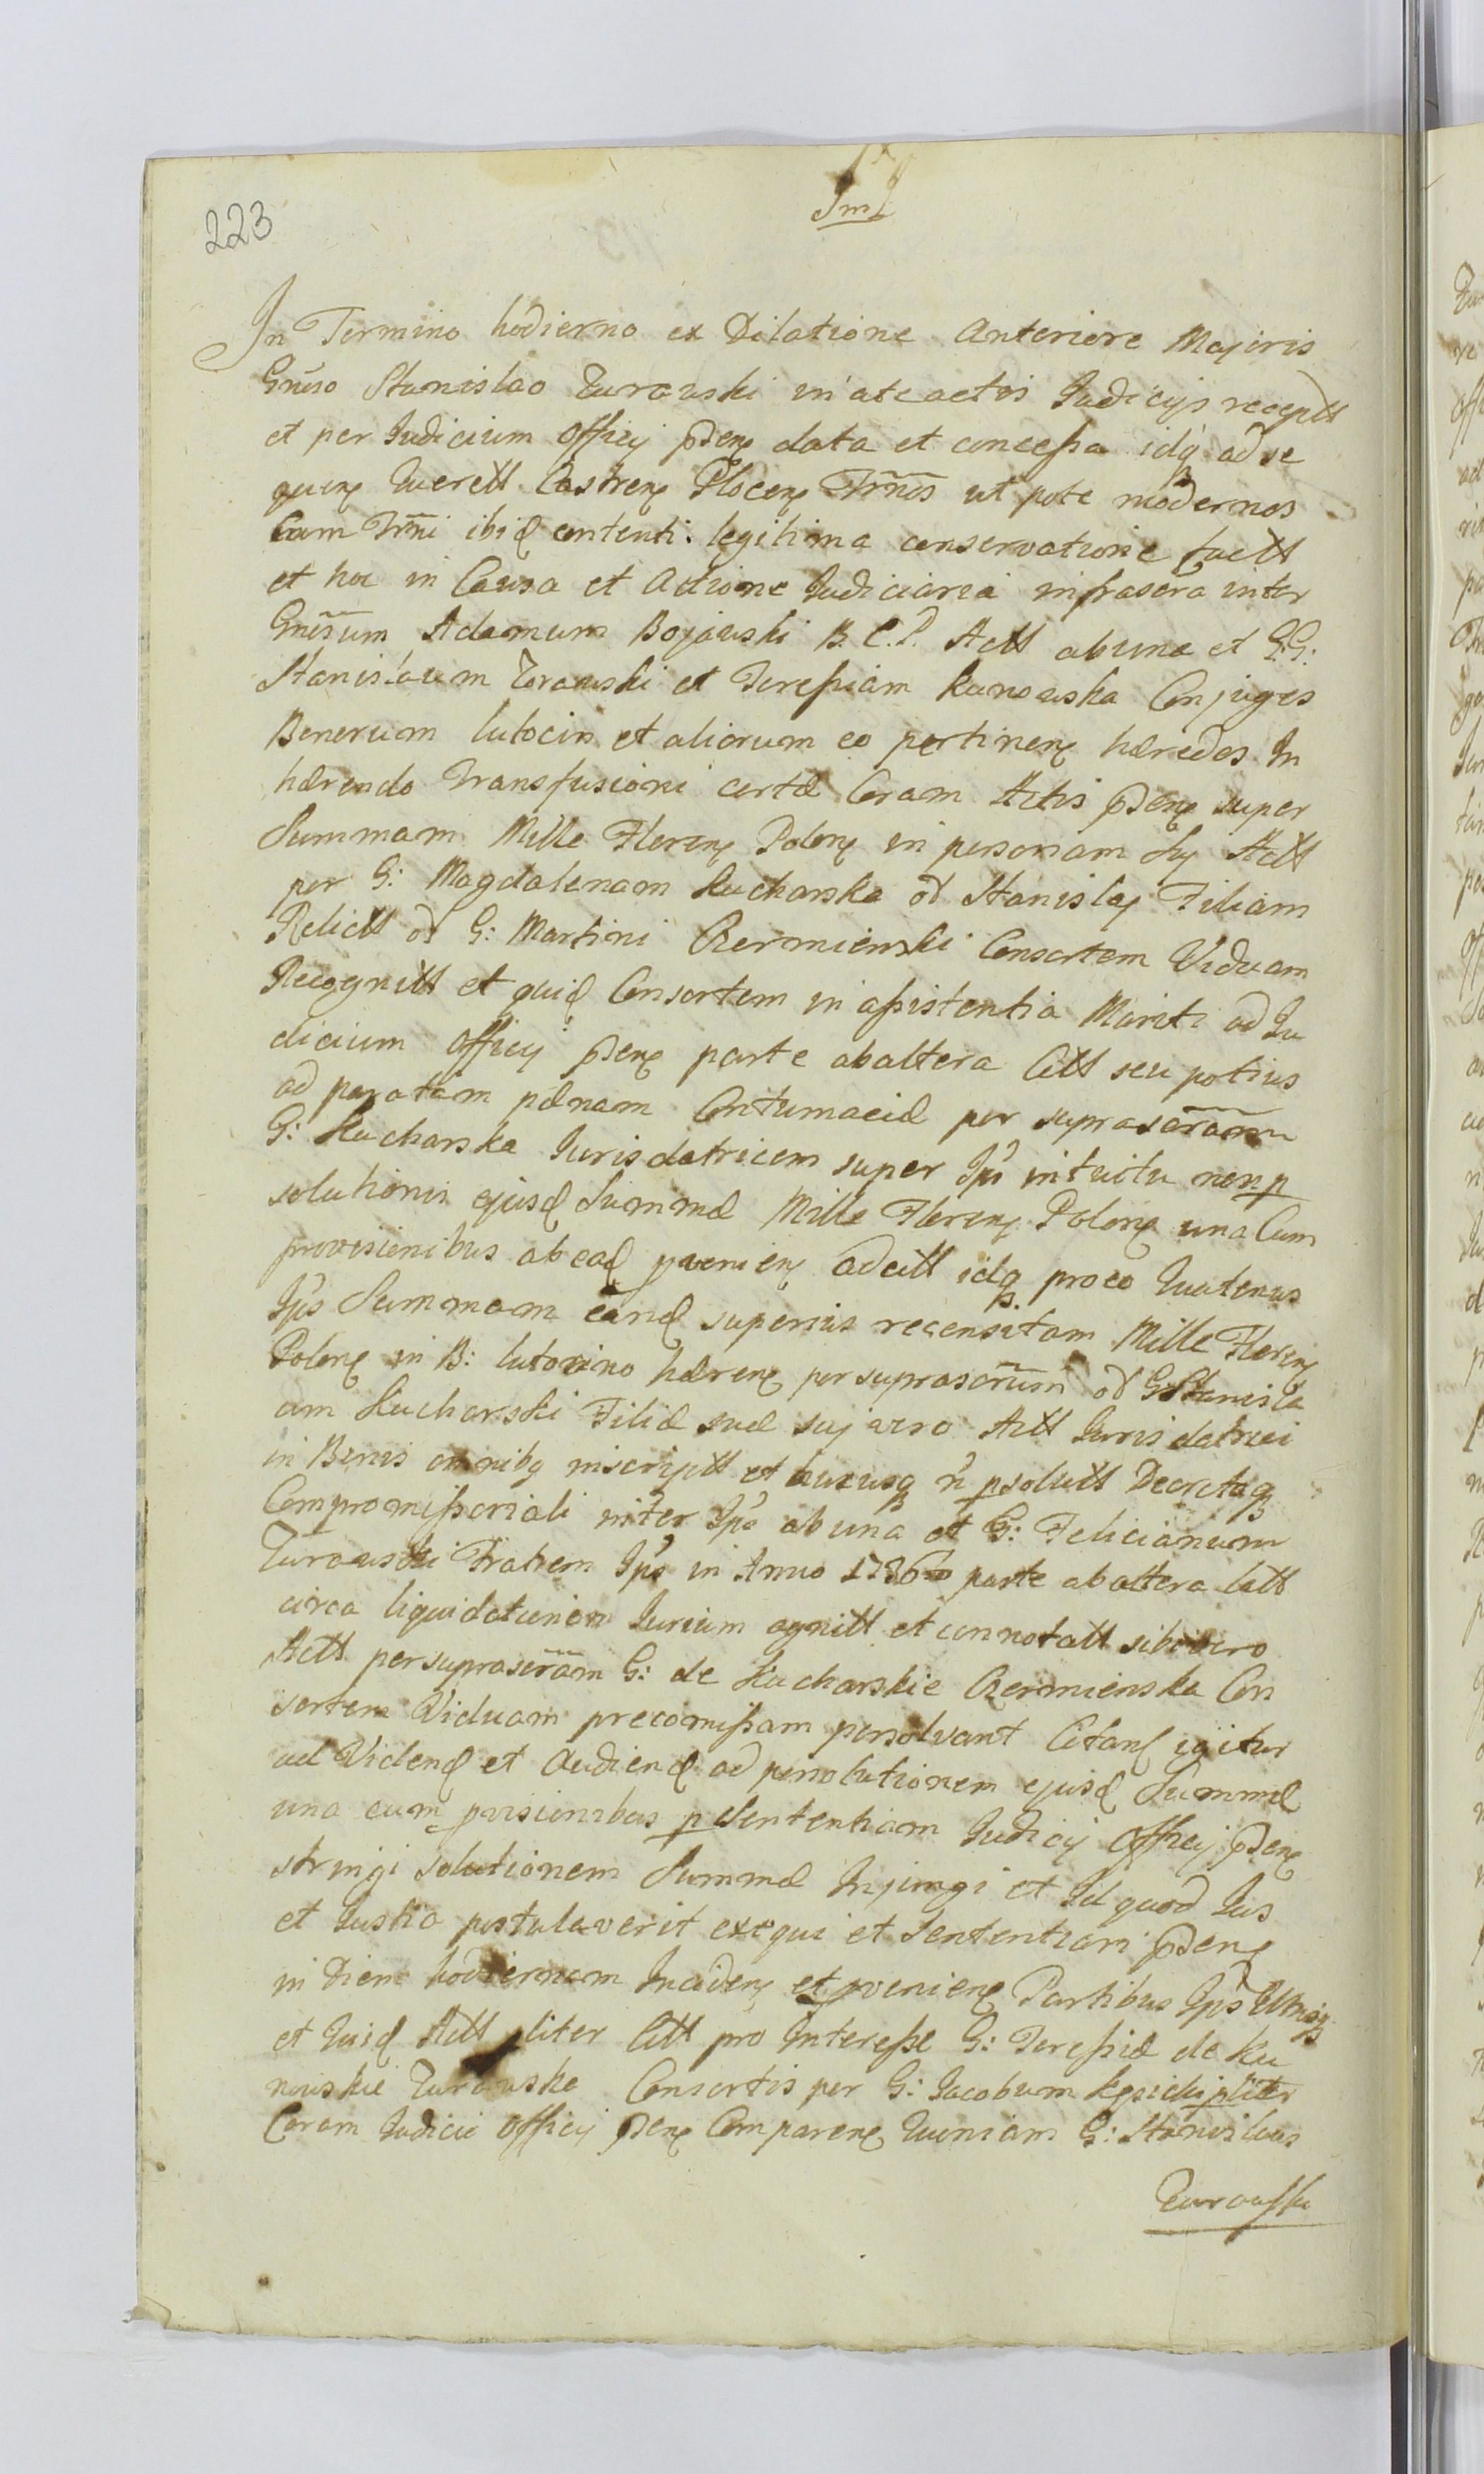 223
In Termino hodierno ex Dilatione anteriore Majoris
Gnoso Stanislao Turowski in ate actis Iudicijs receptt
et per Iudicium Officij pden data et concessa idq ad se
quen Querell Castren Plocen Trnos ut pote modernos
Cum Trni ibid contenti legitima conservatione factt
et hoc in Causa et Actione Iudiciaria infrascra inter
Gnosum Adamum Bojanski B. C. P. Actt ab una et G:G:
Stanislaum Torowski et Teressiam Kunowska Conjuges
Bonorum Lutocin et aliorum eo pertinen hæredes In
hærendo Transfusioni certæ Coram Actis pden super
Summam Mille Floren Polon in personam Suj Actt
per G: Magdalenam Kucharska od Stanislaj Filiam
Relictt od G: Martini Czermienski Consortem Viduam
Recognitt et quid Consortem in assistentia Mariti ad Iu
dicium Officij pden parte ab altera Citt seu potius
ad paratam pænam Contumaciæ per suprascram
G: Kucharska Iurisdatricem super Ips intuitu non p
solutionis ejusd Summæ Mille Floren Polon una Cum
provisionibus ab ead pvenien adcitt idq pro eo Quatenus
Ips Summam eand superius recensitam Mille Floren
Polon in B: Lutocino hæren per suprascrum od G: Stanisla
um Kucharski Filiæ suæ suj vero Actt Iuris datrici
in Bonis omnibq inscriptt et hucusq n psolutt Decretoq
Compromissoriali inter Ips ab una et G: Felicianum
Turowski Fratrem Ips in Anno 1736to parte ab altera latt
circa liquidationem Iurium agnitt et connotatt sibi vero
Actt per suprascram G: de Kucharskie Czermienska Con
sortem Viduam precomissam persolvant Citand igitur
ad Vidend et Audiend ad persolutionem ejusd Summæ
una cum pvisionibus p Sententiam Iudicij Officij pden
stringi solutionem Summæ Injungi et Id quod Ius
et Iustia postulaverit exequi et sententiari pden
in Diem hodiernam Inciden et pvenien Partibus Ips Utrisq
et quid Actt pliter Citt pro Interesse G: Teressiæ de Ku
nowskie Turowska Consortis per G: Iacobum pliter
Coram Iudicio Officij pden Comparen Quoniam G: Stanislaus
Turowski